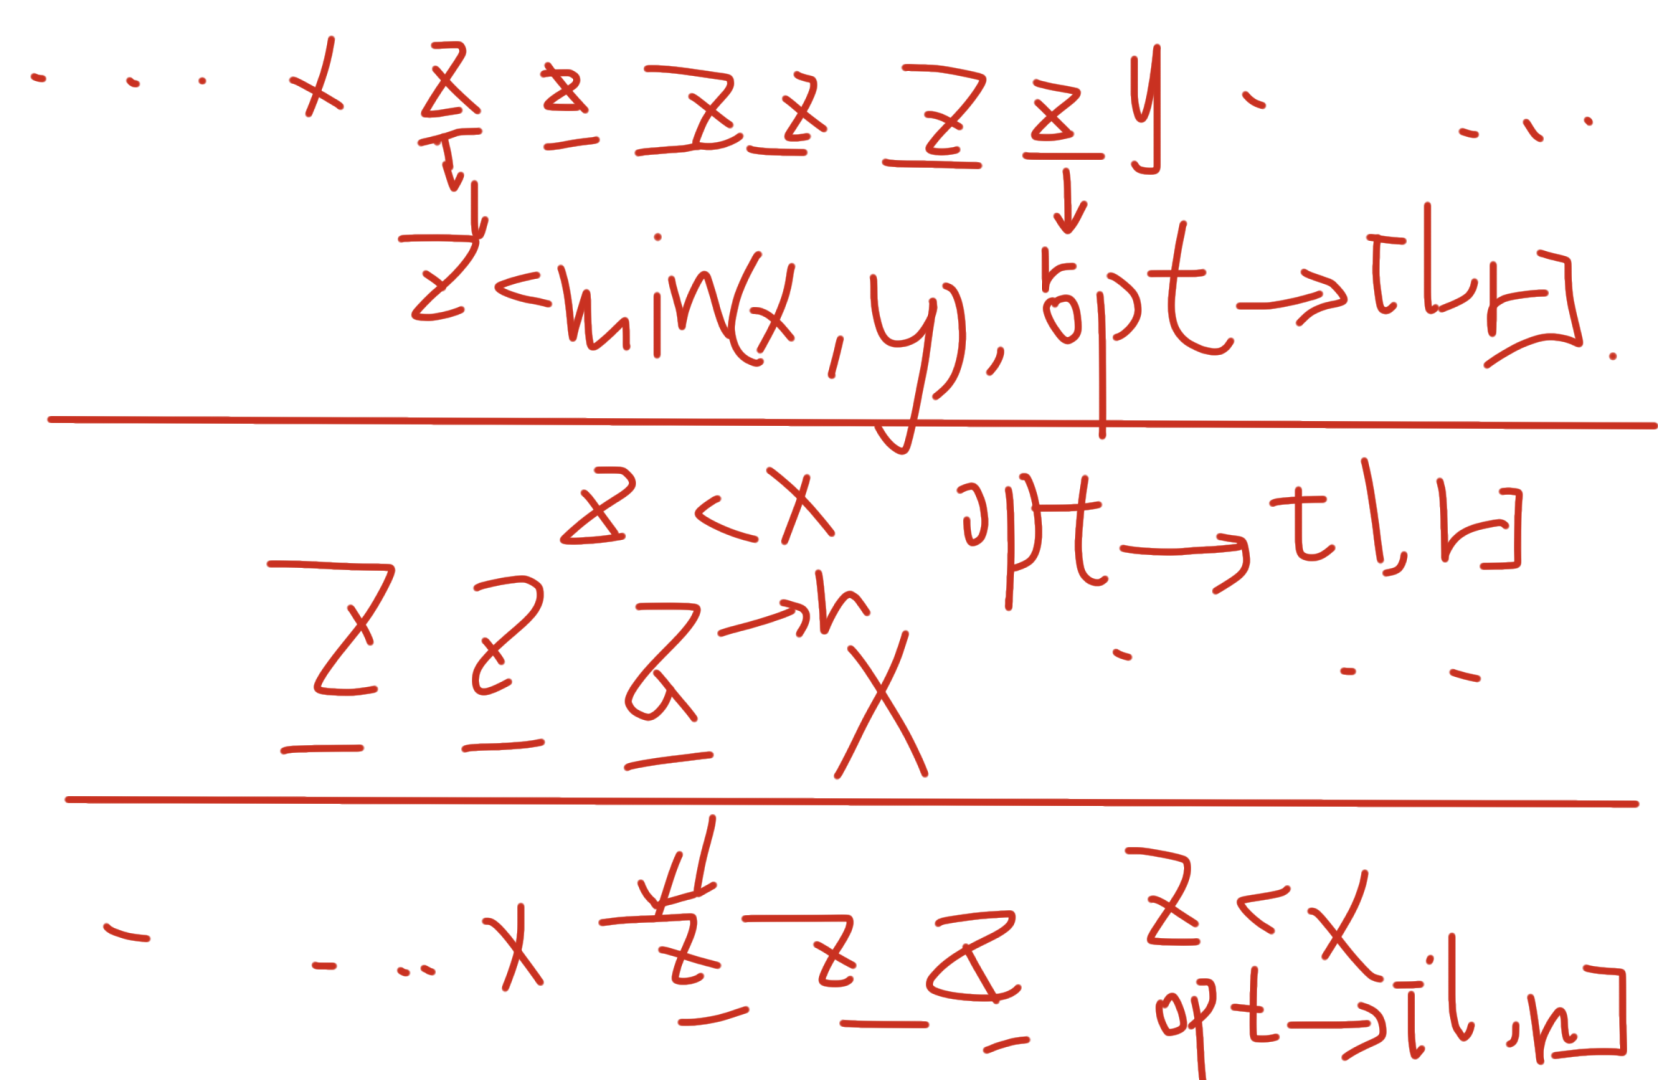 . . . x z z z z z z y . . . .
z < min(x, y), opt → [l, r].
r
z < x opt → [l, r]
z z z → r x . . .
. . . . x z z z z < x
opt → [l, r]